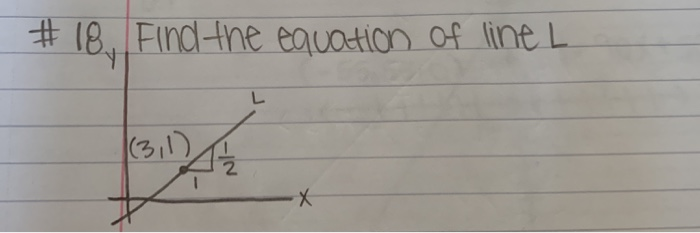 # 18, Find the equation of line L
y
L
(3,1)
1/2
1
x